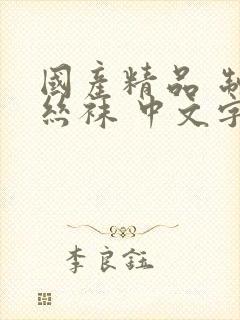 國産精品 制
絲袜 中文字
李良鈺